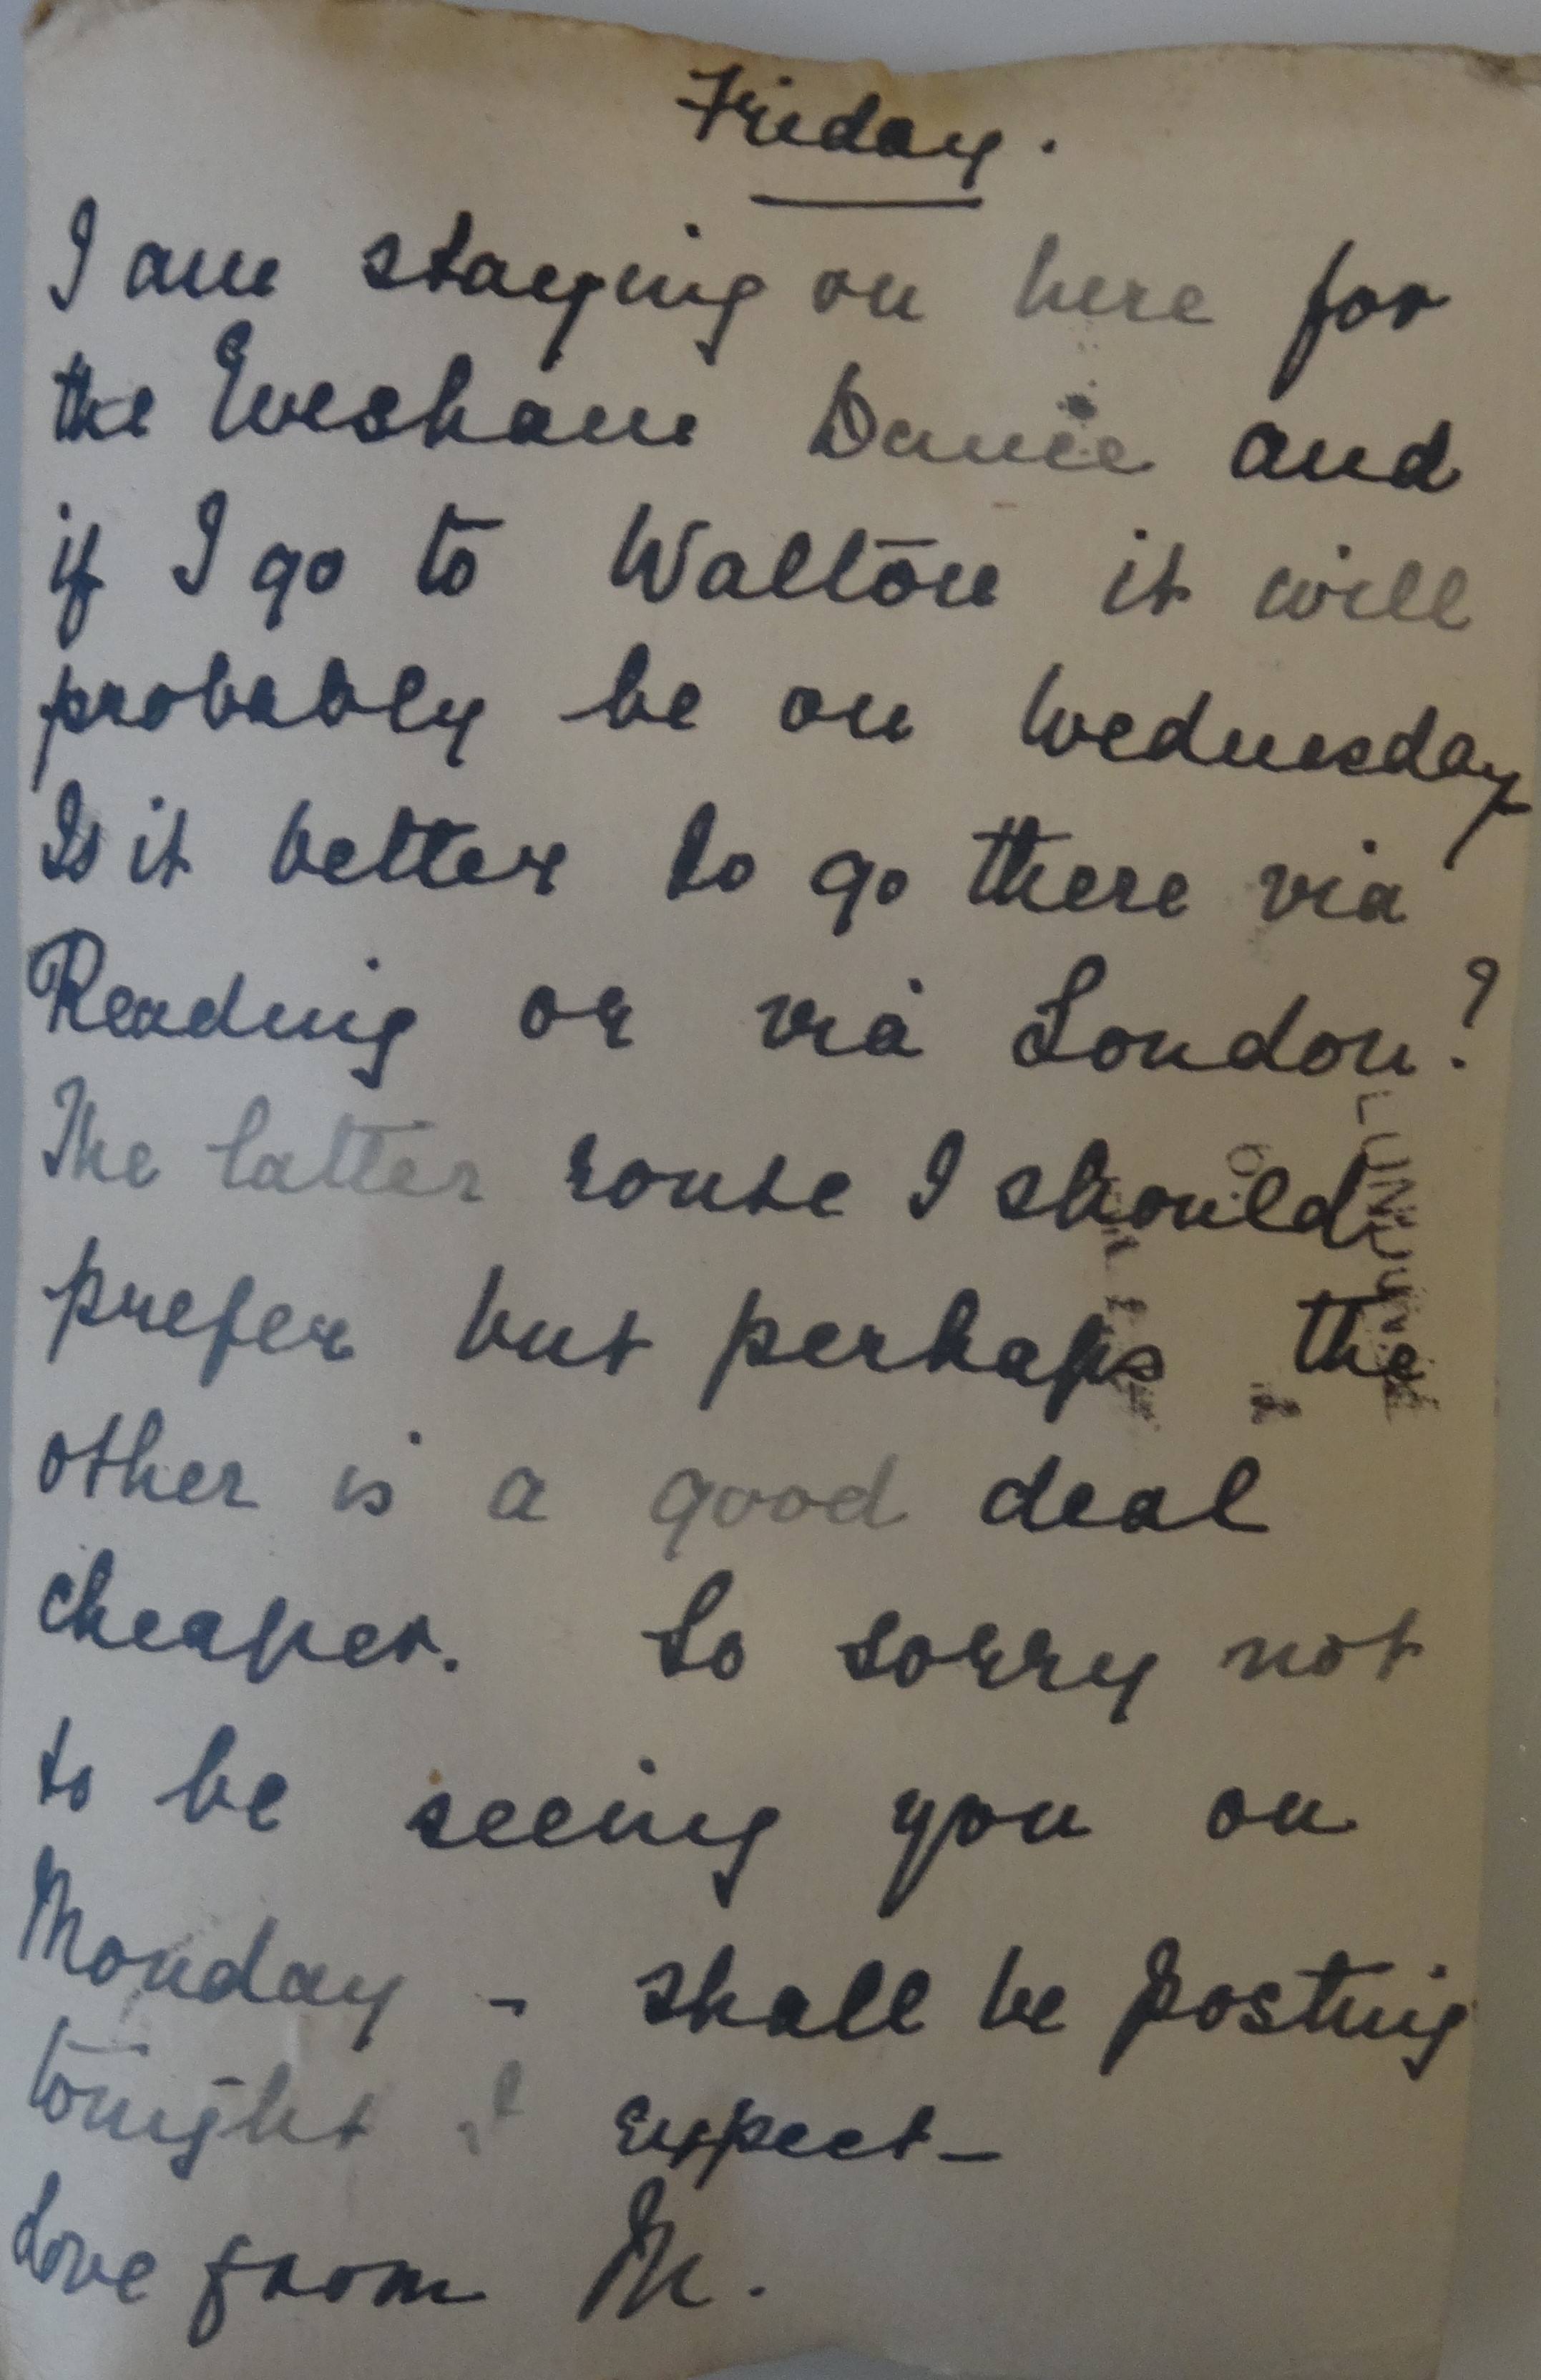 Friday.
I am staying on here for
the Evesham Dance and
if I go to Walton it will
probably be on Wednesday
Is it better to go there via
Reading or via London?
The latter route I should
prefer but perhaps the
other is a good deal
cheaper. So sorry not
to be seeing you on
Monday - shall be posting
tonight I expect -
Love from M.